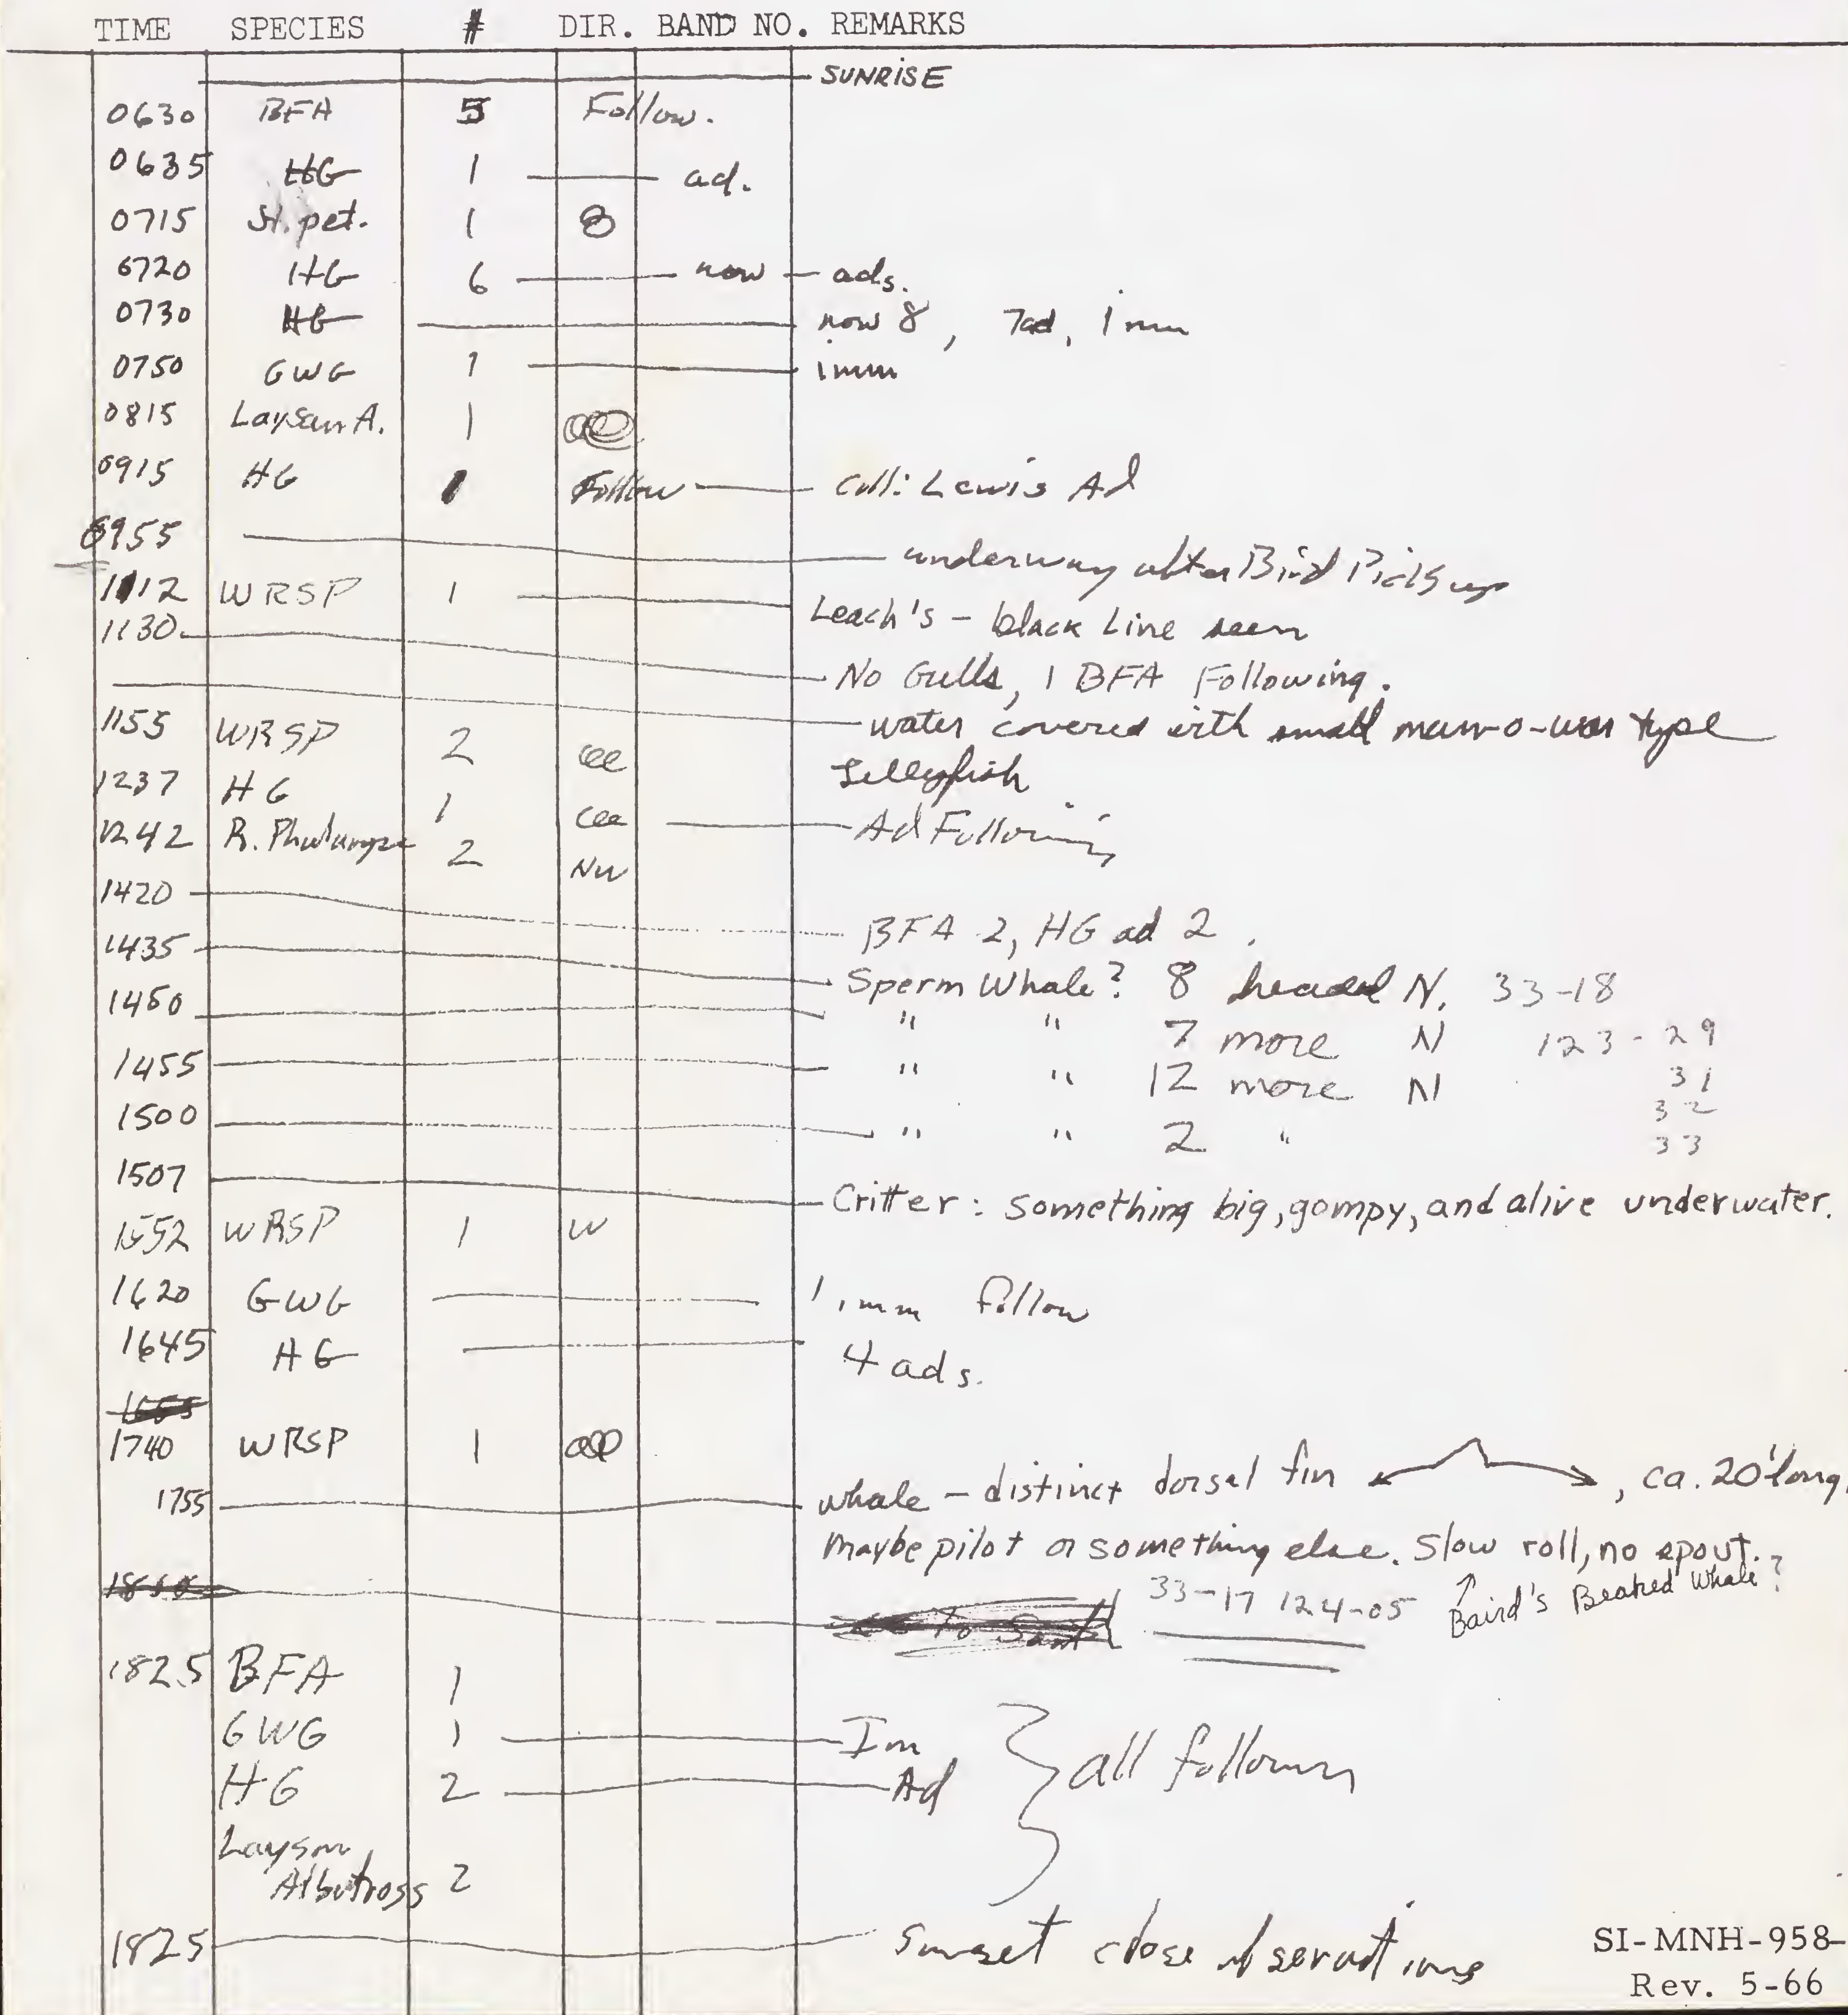 TIME SPECIES # DIR. BAND NO. REMARKS
SUNRISE
0630 BFA 5 Follow.
0635 HG 1 ad.
0715 St. pet. 1
0720 HG 6 now ads.
0730 HG now 8, 7ad, 1 mm
0750 GWG 1 imm
0815 Laysan A. 1
0915 HG 1 Follow Coll: Lewis Ad
0955 underway after Bird Pick up
1112 WRSP 1 Leach's - black Line seen
1130 No Gulls, 1 BFA Following.
water covered with small man-o-war type
Jellyfish
1155 WRSP 2
1237 HG 1 Ad Following
1242 R. Phalarope 2 NW
1420 BFA 2, HG ad 2.
1435 Sperm Whale? 8 headed N. 33-18
1450 " " 7 more N 123-29
1455 " " 12 more N 31
32
1500 " " 2 " 33
1507 Critter: something big, gompy, and alive underwater.
1552 WRSP 1 W
1620 GWG 1 imm follow
1645 HG 4 ads.
1655
1740 WRSP 1
1755 whale - distinct dorsal fin , ca. 20' long,
maybe pilot or something else. Slow roll, no spout.
33-17 124-05 ↑ Baird's Beaked Whale?
1825 BFA 1
GWG 1 Im
HG 2 Ad
all following
Laysan
Albatross 2
1825 Sunset close observations
SI-MNH-958-
Rev. 5-66